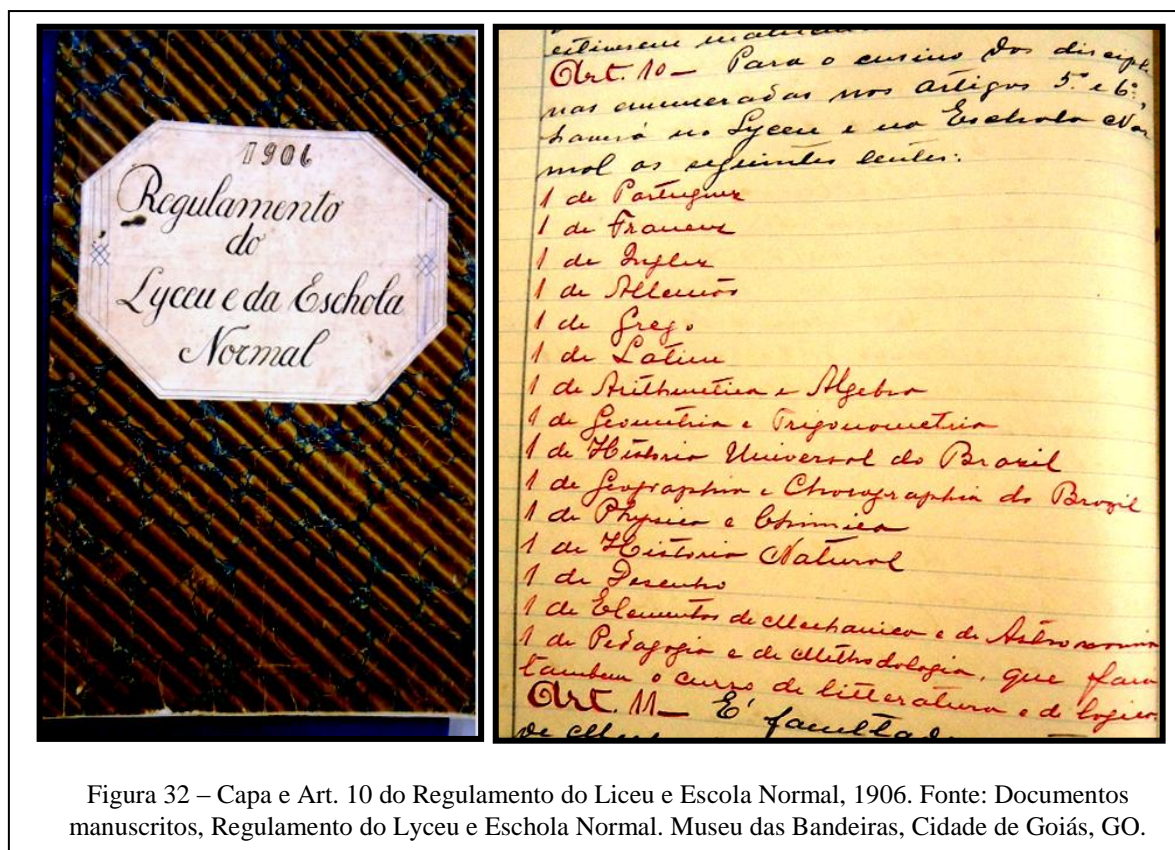 1906
Regulamento
do
Lyceu e da Eschola
Normal
Art. 10 – Para o ensino das discipli
nas enumeradas nos artigos 5º e 6º,
haverá no Lyceu e na Eschola Nor
mal os seguintes lentes:
1 de Portuguez
1 de Francez
1 de Inglez
1 de Allemão
1 de Grego
1 de Latim
1 de Arithmetica e Algebra
1 de Geometria e Trigonometria
1 de Historia Universal do Brazil
1 de Geographia e Chorographia do Brazil
1 de Physica e Chimica
1 de Historia Natural
1 de Desenho
1 de Elementos de Mechanica e de Astronomia
1 de Pedagogia e de Methodologia, que fara
tambem o curso de litteratura e de logica.
Art. 11 – É facultado
de
Figura 32 – Capa e Art. 10 do Regulamento do Liceu e Escola Normal, 1906. Fonte: Documentos
manuscritos, Regulamento do Lyceu e Eschola Normal. Museu das Bandeiras, Cidade de Goiás, GO.